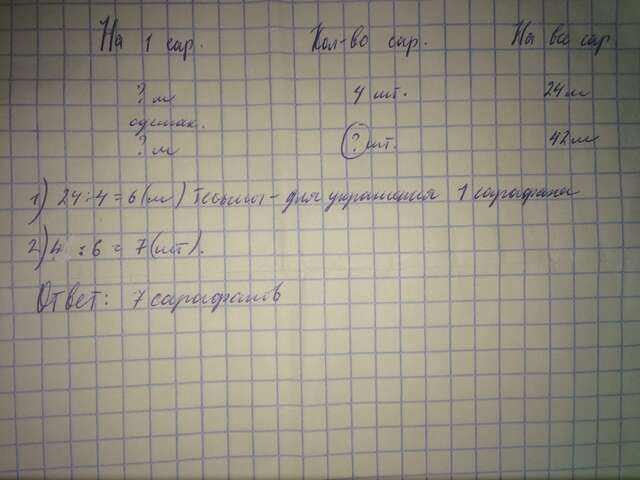 На 1 сар. Кол-во сар. На все сар.
? м 4 шт. 24м
одинак.
? м ? шт. 42м
1) 24:4=6(м) тесьмы - для украшения 1 сарафана
2) 4 :6= 7(шт).
Ответ: 7 сарафанов